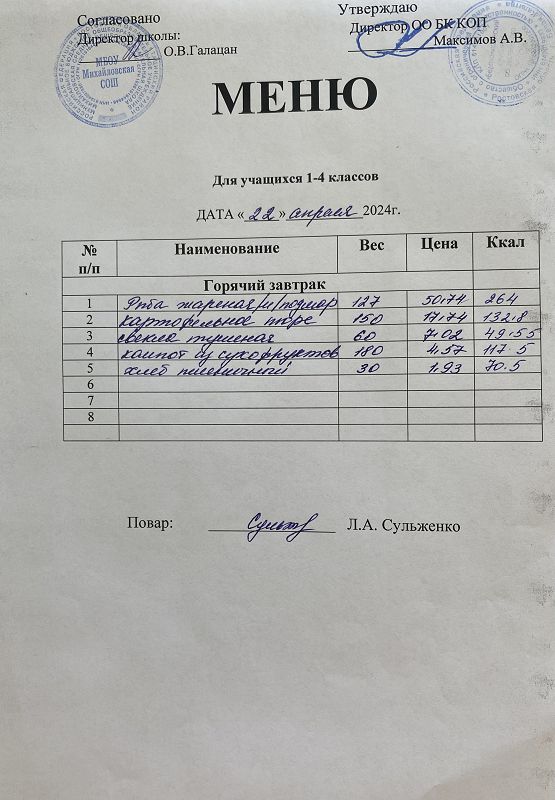 Согласовано
Утверждаю
Директор школы:
Директор ОО БК КОП
О.В.Галацан
Максимов А.В.
МБОУ
Михайловская
СОШ
МЕНЮ
Для учащихся 1-4 классов
ДАТА «22» апреля 2024г.
№ п/п Наименование Вес Цена Ккал
Горячий завтрак
1 Рыба жареная/и/подмар 127 50.74 264
2 картофельное пюре 150 17.74 132.8
3 свекла тушеная 60 7.02 49.55
4 компот из сухофруктов 180 4.57 117.5
5 хлеб пшеничный 30 1.93 70.5
6
7
8
Повар: Л.А. Сульженко